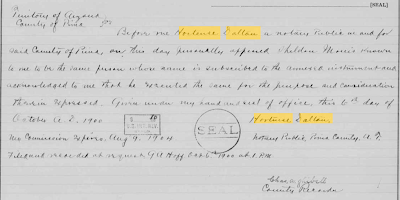 [SEAL]
Territory of Arizona
County of Pima, } ss
Before me Hortense Dallam a notary Public in and for
said County of Pima, on this day personally appeared Sheldon Morris known
to me to be the same person whose name is subscribed to the annexed instrument and
acknowledged to me that he executed the same for the purpose and consideration
therein expressed. Given under my hand and seal of office, this 6th day of
October A.D. 1900
Hortense Dallam
SEAL
My Commission Expires Aug 9, 1904
Notary Public, Pima County, A.T.
Filed and recorded at request of
1900 at 1 P.M.
County Recorder